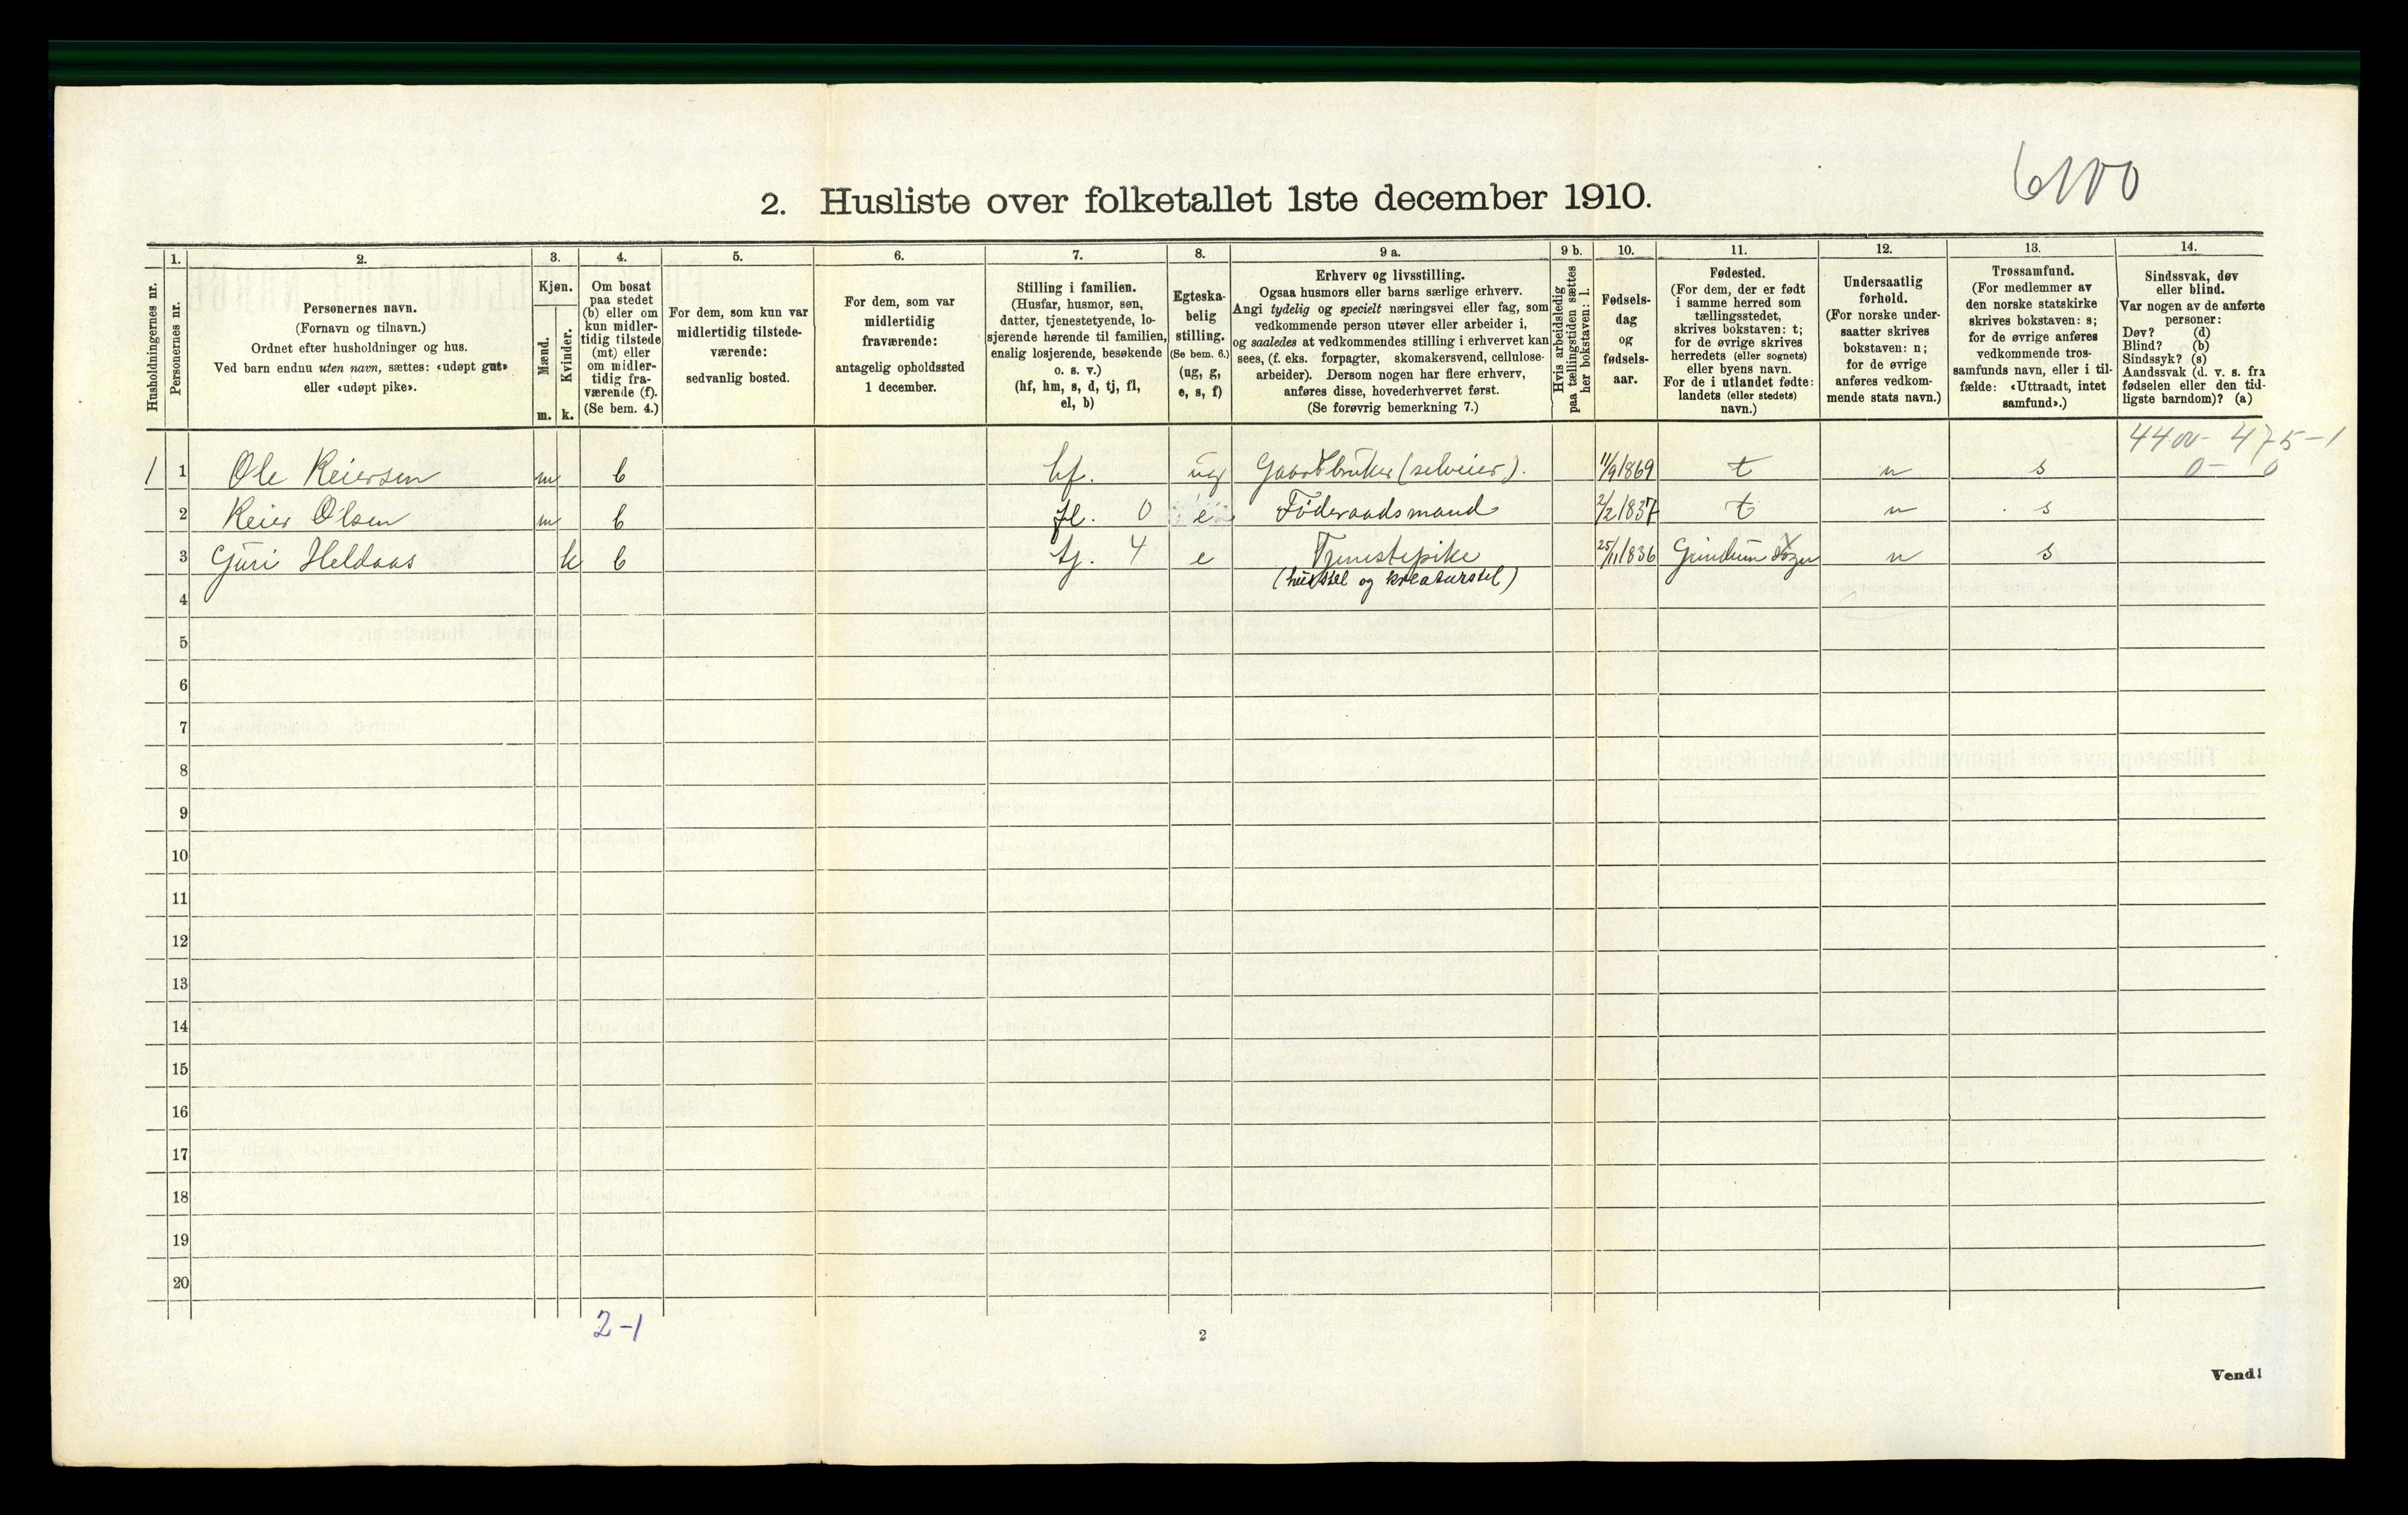 6100
2. Husliste over folketallet 1ste december 1910.
Husholdningernes nr.
1.
Personernes nr.
2.
Personernes navn.
(Fornavn og tilnavn.)
Ordnet efter husholdninger og hus.
Ved barn endnu uten navn, sættes: «udøpt gut»
eller «udøpt pike».
3.
Kjøn.
Mænd.
m.
Kvinder.
k.
4.
Om bosat
paa stedet
(b) eller om
kun midler-
tidig tilstede
(mt) eller
om midler-
tidig fra-
værende (f).
(Se bem. 4.)
5.
For dem, som kun var
midlertidig tilstede-
værende:
sedvanlig bosted.
6.
For dem, som var
midlertidig
fraværende:
antagelig opholdssted
1 december.
7.
Stilling i familien.
(Husfar, husmor, søn,
datter, tjenestetyende, lo-
sjerende hørende til familien,
enslig losjerende, besøkende
o. s. v.)
(hf, hm, s, d, tj, fl,
el, b)
8.
Egteska-
belig
stilling.
(Se bem. 6.)
(ug, g,
e, s, f)
9 a.
Erhverv og livsstilling.
Ogsaa husmors eller barns særlige erhverv.
Angi tydelig og specielt næringsvei eller fag, som
vedkommende person utøver eller arbeider i,
og saaledes at vedkommendes stilling i erhvervet kan
sees, (f. eks. forpagter, skomakersvend, cellulose-
arbeider). Dersom nogen har flere erhverv,
anføres disse, hovederhvervet først.
(Se forøvrig bemerkning 7.)
9 b.
Hvis arbeidsledig
paa tællingstiden sættes
her bokstaven: l.
10.
Fødsels-
dag
og
fødsels-
aar.
11.
Fødested.
(For dem, der er født
i samme herred som
tællingsstedet,
skrives bokstaven: t;
for de øvrige skrives
herredets (eller sognets)
eller byens navn.
For de i utlandet fødte:
landets (eller stedets)
navn.)
12.
Undersaatlig
forhold.
(For norske under-
saatter skrives
bokstaven: n;
for de øvrige
anføres vedkom-
mende stats navn.)
13.
Trossamfund.
(For medlemmer av
den norske statskirke
skrives bokstaven: s;
for de øvrige anføres
vedkommende tros-
samfunds navn, eller i til-
fælde: «Uttraadt, intet
samfund».)
14.
Sindssvak, døv
eller blind.
Var nogen av de anførte
personer:
Døv? (d)
Blind? (b)
Sindssyk? (s)
Aandssvak (d. v. s. fra
fødselen eller den tid-
ligste barndom)? (a)
4400- 475-1
0- 0
1 1 Ole Keiersen m b hf. ug Gaardbruker (selveier). 11/9 1869 t n s
2 Keier Olsen m b fl. 0 e Føderaadsmand 2/2 1837 t n s
3 Guri Heldaas k b tj. 4 e Tjenestepike 25/11 1836 Grindum n s
(husstel og kreaturstel)
4
5
6
7
8
9
10
11
12
13
14
15
16
17
18
19
20
2-1
2
Vend!